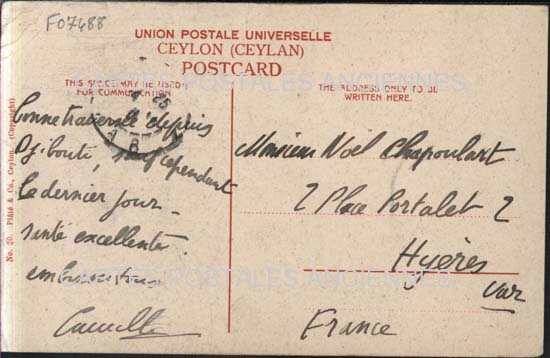 F07488
UNION POSTALE UNIVERSELLE
CEYLON (CEYLAN)
POSTCARD
THIS SPACE MAY BE USED
FOR COMMUNICATION
THE ADDRESS ONLY TO BE
WRITTEN HERE.
CARTES POSTALES ANCIENNES
bonne traversée depuis
Djibouti, sauf cependant
le dernier jour –
santé excellente.
embrassons
Camille
Monsieur Noël Chapoulart
2 Place Portalet 2
Hyères
Var
France
CARTES POSTALES ANCIENNES
No. 20. Plâté & Co., Ceylon. (Copyright)